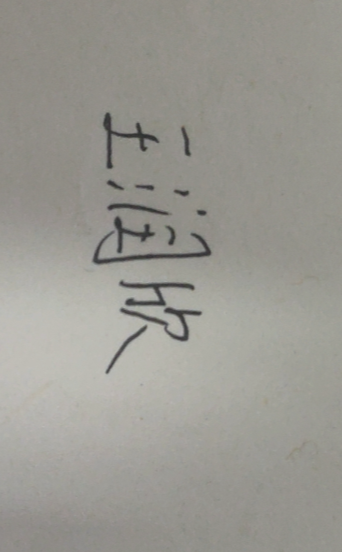 王润欣